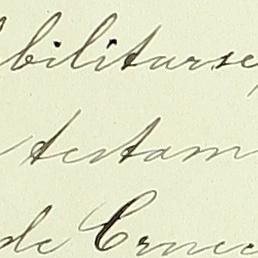 bilitarse,
testam
de Cruce